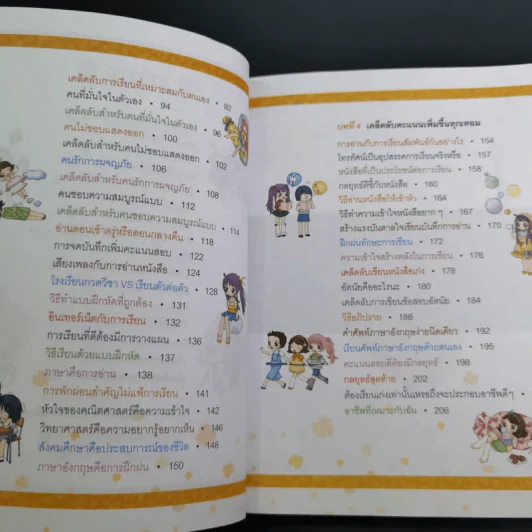 เคล็ดลับการเรียนที่เหมาะสมกับตนเอง • 92
คนที่มั่นใจในตัวเอง • 94
เคล็ดลับสำหรับคนที่มั่นใจในตัวเอง • 96
คนไม่ชอบแสดงออก • 100
เคล็ดลับสำหรับคนไม่ชอบแสดงออก • 102
คนรักการผจญภัย • 106
เคล็ดลับสำหรับคนรักการผจญภัย • 108
คนชอบความสมบูรณ์แบบ • 112
เคล็ดลับสำหรับคนชอบความสมบูรณ์แบบ • 114
อ่านตอนเช้าตรู่หรือตอนกลางคืน • 118
การจดบันทึกเพิ่มคะแนนสอบ • 122
เสียงเพลงกับการอ่านหนังสือ • 124
โรงเรียนกวดวิชา VS เรียนตัวต่อตัว • 128
วิธีทำแบบฝึกหัดที่ถูกต้อง • 131
อินเทอร์เน็ตกับการเรียน • 132
การเรียนที่ดีต้องมีการวางแผน • 136
วิธีเรียนด้วยแบบฝึกหัด • 137
ภาษาคือการอ่าน • 138
การพักผ่อนสำคัญไม่แพ้การเรียน • 141
หัวใจของคณิตศาสตร์คือความเข้าใจ • 142
วิทยาศาสตร์คือความอยากรู้อยากเห็น • 146
สังคมศึกษาคือประสบการณ์ของชีวิต • 148
ภาษาอังกฤษคือการฝึกฝน • 150
บทที่ 4 เคล็ดลับคะแนนเพิ่มขึ้นทุกเทอม
การอ่านกับการเรียนสัมพันธ์กันอย่างไร • 154
โทรทัศน์เป็นอุปสรรคการเรียนจริงหรือ • 157
หนังสือที่เป็นประโยชน์ต่อการเรียน • 158
กลยุทธ์ตีซี้กับหนังสือ • 160
วิธีอ่านหนังสือให้เข้าหัว • 164
วิธีทำความเข้าใจหนังสือยาก ๆ • 167
สร้างแรงบันดาลใจเขียนบันทึกการอ่าน • 170
ฝึกฝนทักษะการเขียน • 172
ความเข้าใจสร้างพลังในการเขียน • 176
เคล็ดลับเขียนหนังสือเก่ง • 178
อัตนัยคืออะไรนะ • 180
เคล็ดลับการเขียนข้อสอบอัตนัย • 184
วิธีอภิปราย • 188
คำศัพท์ภาษาอังกฤษง่ายนิดเดียว • 192
เรียนศัพท์ภาษาอังกฤษด้วยตนเอง • 195
คะแนนสอบดีต้องมีกลยุทธ์ • 198
กลยุทธ์สุดท้าย • 202
ต้องเรียนเก่งเท่านั้นเหรอถึงจะประกอบอาชีพดี ๆ •
อาชีพที่เหมาะกับฉัน • 206